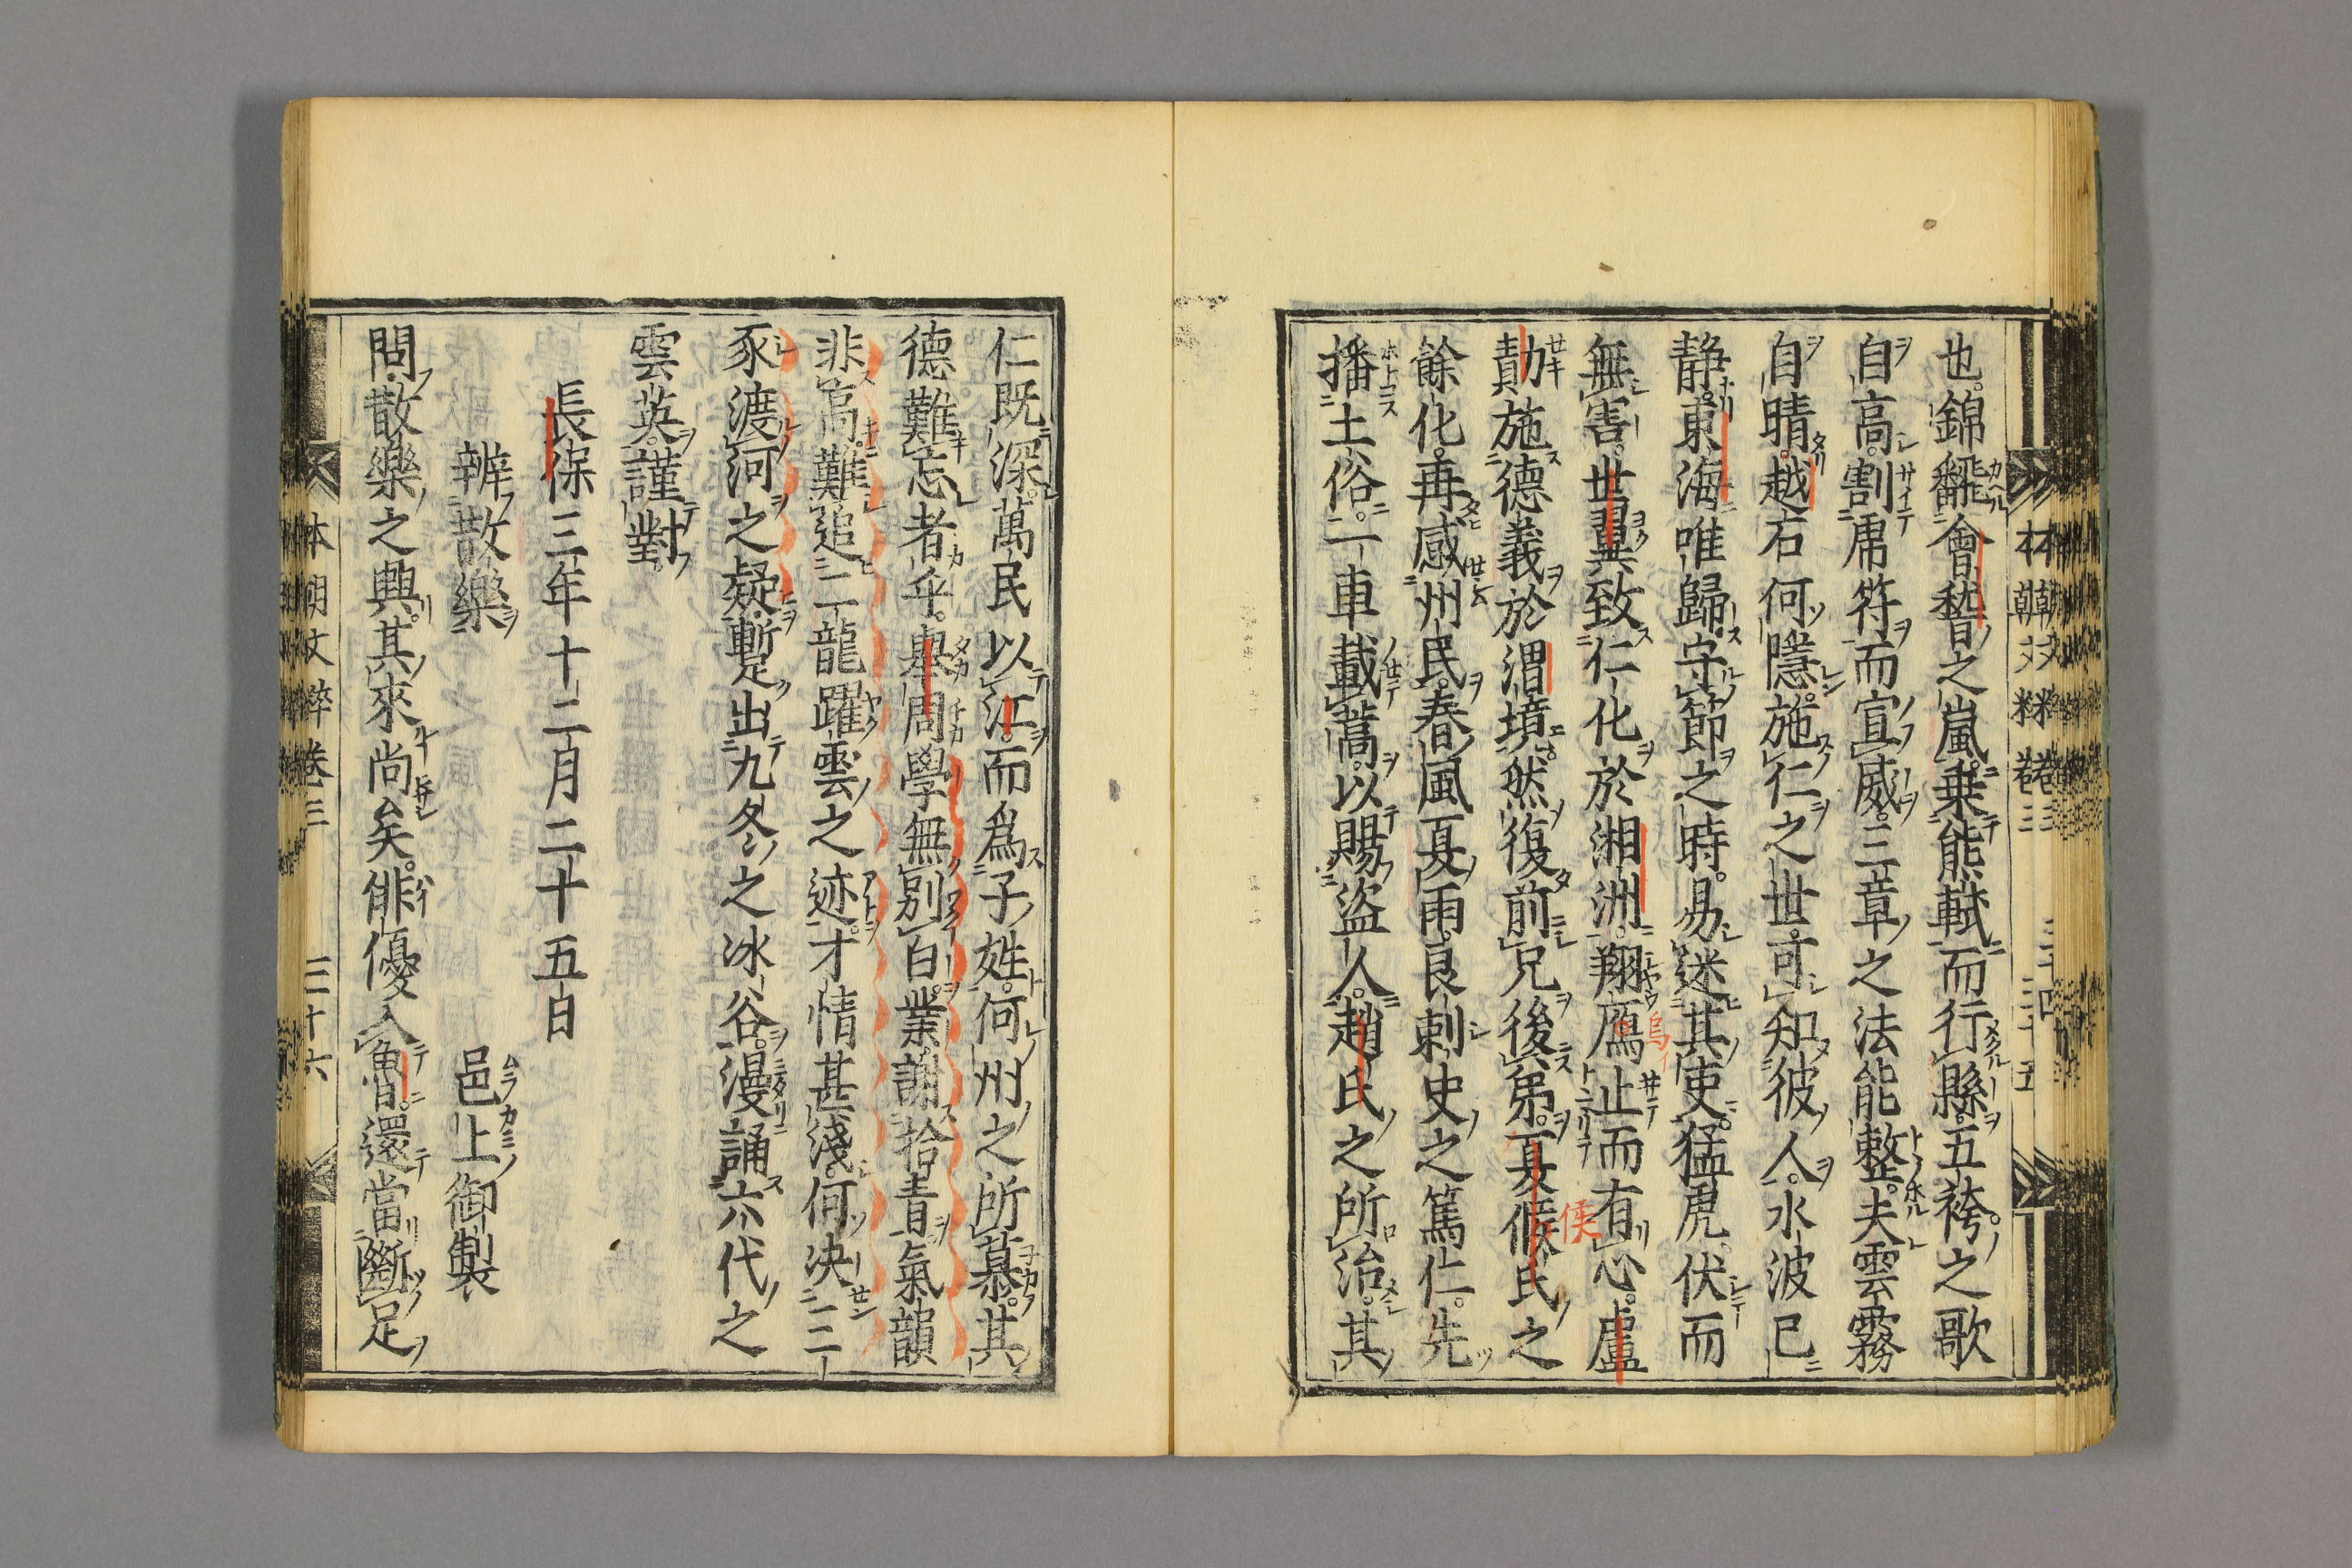 也。錦翻會稽之嵐。乗熊軾而行縣。五袴之歌
自高。割席符而宣威。三章之法能整。夫雲霧
自晴。越石何隱。施仁之世。可知彼人。水波已
静。東海唯歸。守節之時。易迷其吏。猛虎伏而
無害。世翼致仁化於湘洲。翔鴈止而有心。盧
勣施德義於渭境。然復前兄後弟。夏候氏之
餘化。再感州民。春風夏雨。良刺史之篤仁。先
播土俗。一車載蒿。以賜盜人。趙氏之所治。其
烏イ
侯
仁既深。萬民以江。而為子姓。何州之所慕。其
德難忘者乎。舉周學無別白。業謝拾青。氣韻
非高。難追一龍躍雲之迹。才情甚淺。何決三
豕渡河之疑。暫出九冬之冰谷。漫誦六代之
雲英。謹對。
長保三年十二月二十五日
辨散樂
邑上御製
問。散樂之興。其來尚矣。俳優入魯。還當斷足
本朝文粹卷三
三十六